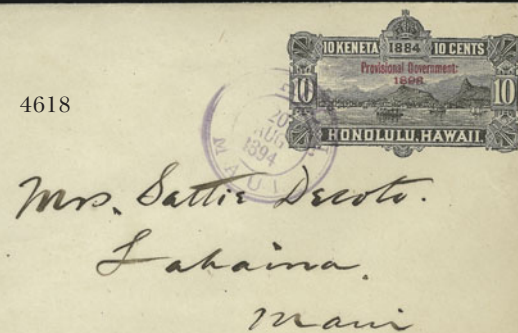 10 KENETA 1884 10 CENTS
Provisional Government:
1893
10 10
HONOLULU, HAWAII
4618
20
AUG
1894
MAUI
Mrs. Sattie Decoto.
Lahaina,
Maui